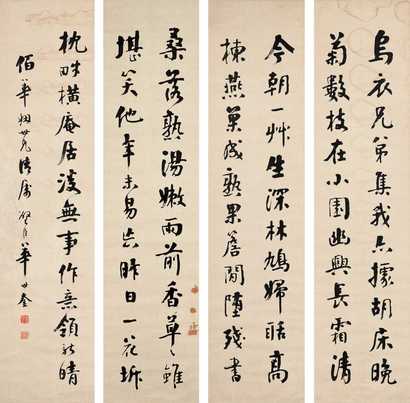 烏衣兄弟集我亦據胡床晚
菊數枝在小園幽興長霜清
今朝一艸生深林鳩婦語高
棟燕巢成熟果簷間墮殘書
桑落熟湯嫩雨前香草〻雖
堪笑他年未易忘昨日一花坼
枕畔橫庵居無事作意領新晴
佰華姻世兄清屬 璧臣華世奎